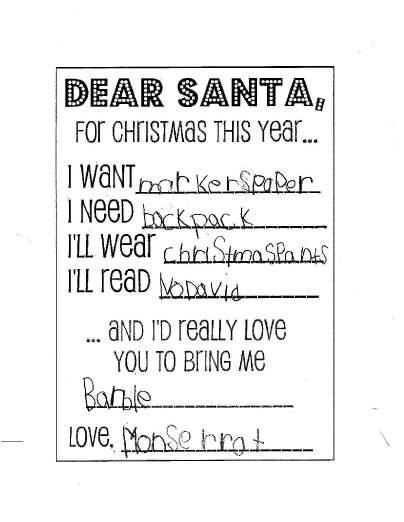 DEAR SANTA,
FOR CHRISTMAS THIS YEAR...
I WANT markerspaper
I NEED backpack
I'LL WEAR christmaspants
I'LL READ NoDavid
... AND I'D REALLY LOVE
YOU TO BRING ME
Barbie
LOVE, Monserrat